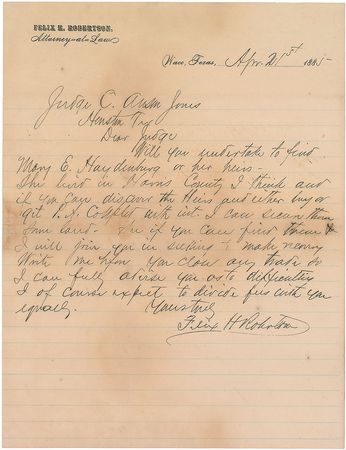 FELIX H. ROBERTSON,
Attorney-at-Law
Waco, Texas, Apr. 21st 1885
Judge C. Anson Jones
Houston Tex
Dear Judge
Will you undertake to find
Mary E. Haydenburg or her heirs.
She lived in Harris County I think and
if you can discover the Heirs and either buy or
get I can secure them
some land. - See if you can find them &
I will join you in seeking to make money
Write me when you close any trade so
I can fully advise you as to difficulties
I of course expect to divide fees with you
equally. Yours truly
Felix H Robertson